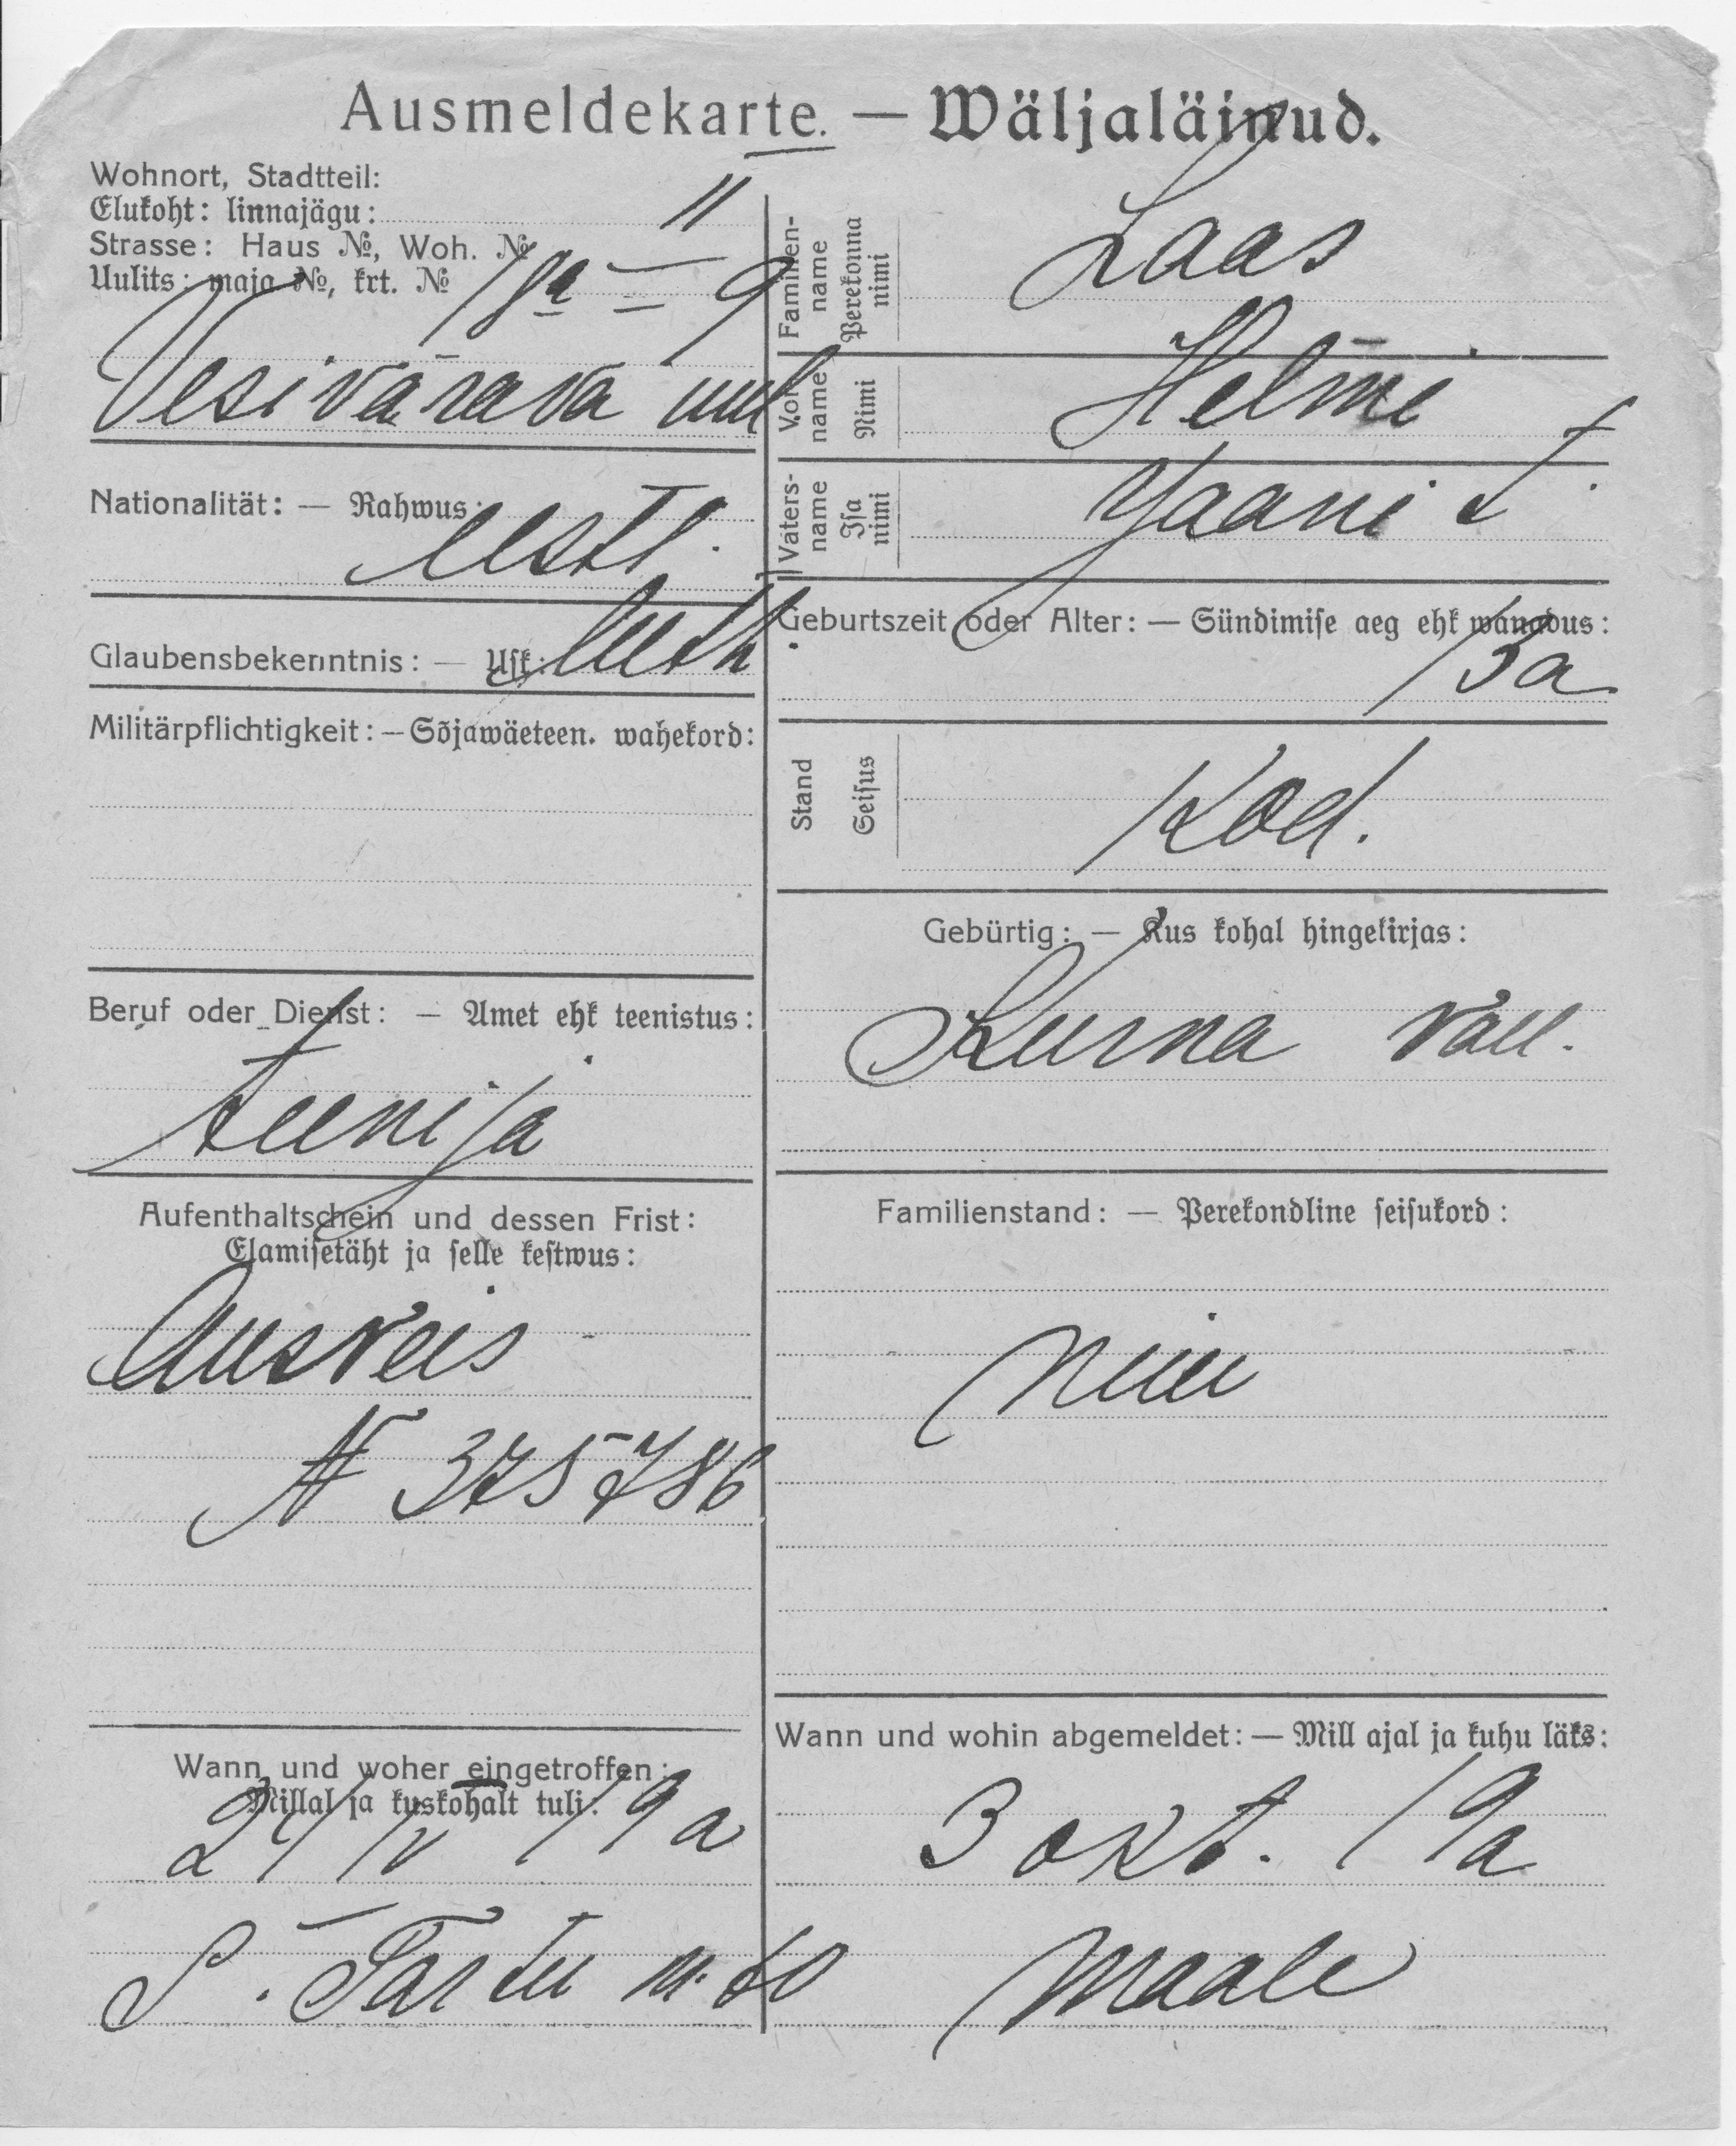 Ausmeldekarte. — Wäljaläinud.
Wohnort, Stadtteil:
Elukoht: linnajägu: II
Strasse: Haus №, Woh. №
Uulits: maja №, krt. № 18a — 9
Vesivärava uul
Nationalität: — Rahwus: eestl.
Glaubensbekenntnis: — Usk: luth.
Militärpflichtigkeit: — Sõjawäeteen. wahekord:
Beruf oder Dienst: — Amet ehk teenistus:
teenija
Aufenthaltschein und dessen Frist:
Elamisetäht ja selle kestwus:
Ausveis
N 375786
Wann und woher eingetroffen:
Millal ja kuskohalt tuli:
24/IV 19a
S. Tartu m.
Familienname Perekonna nimi Laas
Vorname Nimi Helmi
Vatersname Isa nimi Jaani t.
Geburtszeit oder Alter: — Sündimise aeg ehk wanadus:
13a
Stand Seisus Kod.
Gebürtig: — Kus kohal hingekirjas:
Kurna vall.
Familienstand: — Perekondline seisukord:
neiu
Wann und wohin abgemeldet: — Mill ajal ja kuhu läks:
3 okt. 19a
Maale